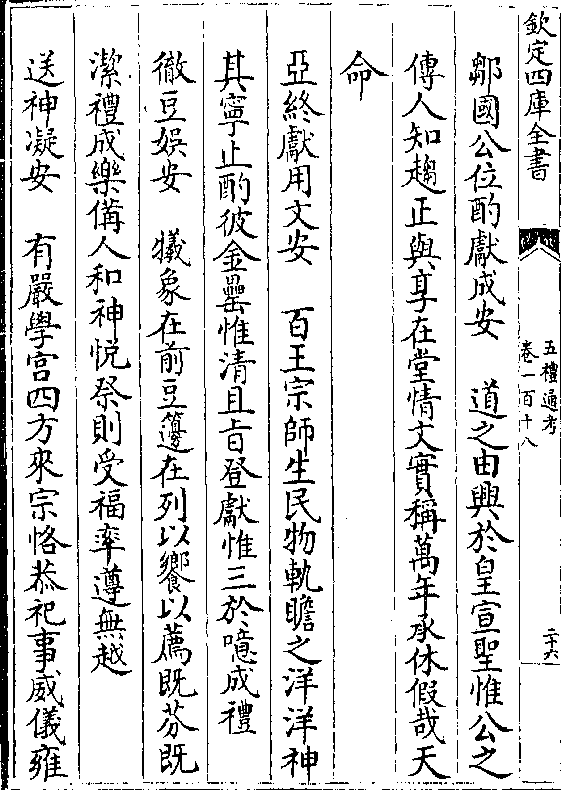 欽定四庫全書
五禮通考
卷一百十八
二十六
鄒國公位酌獻成安　道之由興於皇宣聖惟公之
傳人知趨正與享在堂情文實稱萬年承休假哉天
命
亞終獻用文安　百王宗師生民物軌瞻之洋洋神
其寧止酌彼金罍惟清且旨登獻惟三於噫成禮
徹豆娛安　犧象在前豆籩在列以饗以薦既芬既
潔禮成樂備人和神悅祭則受福率遵無越
送神凝安　有嚴學宮四方來宗恪恭祀事威儀雍